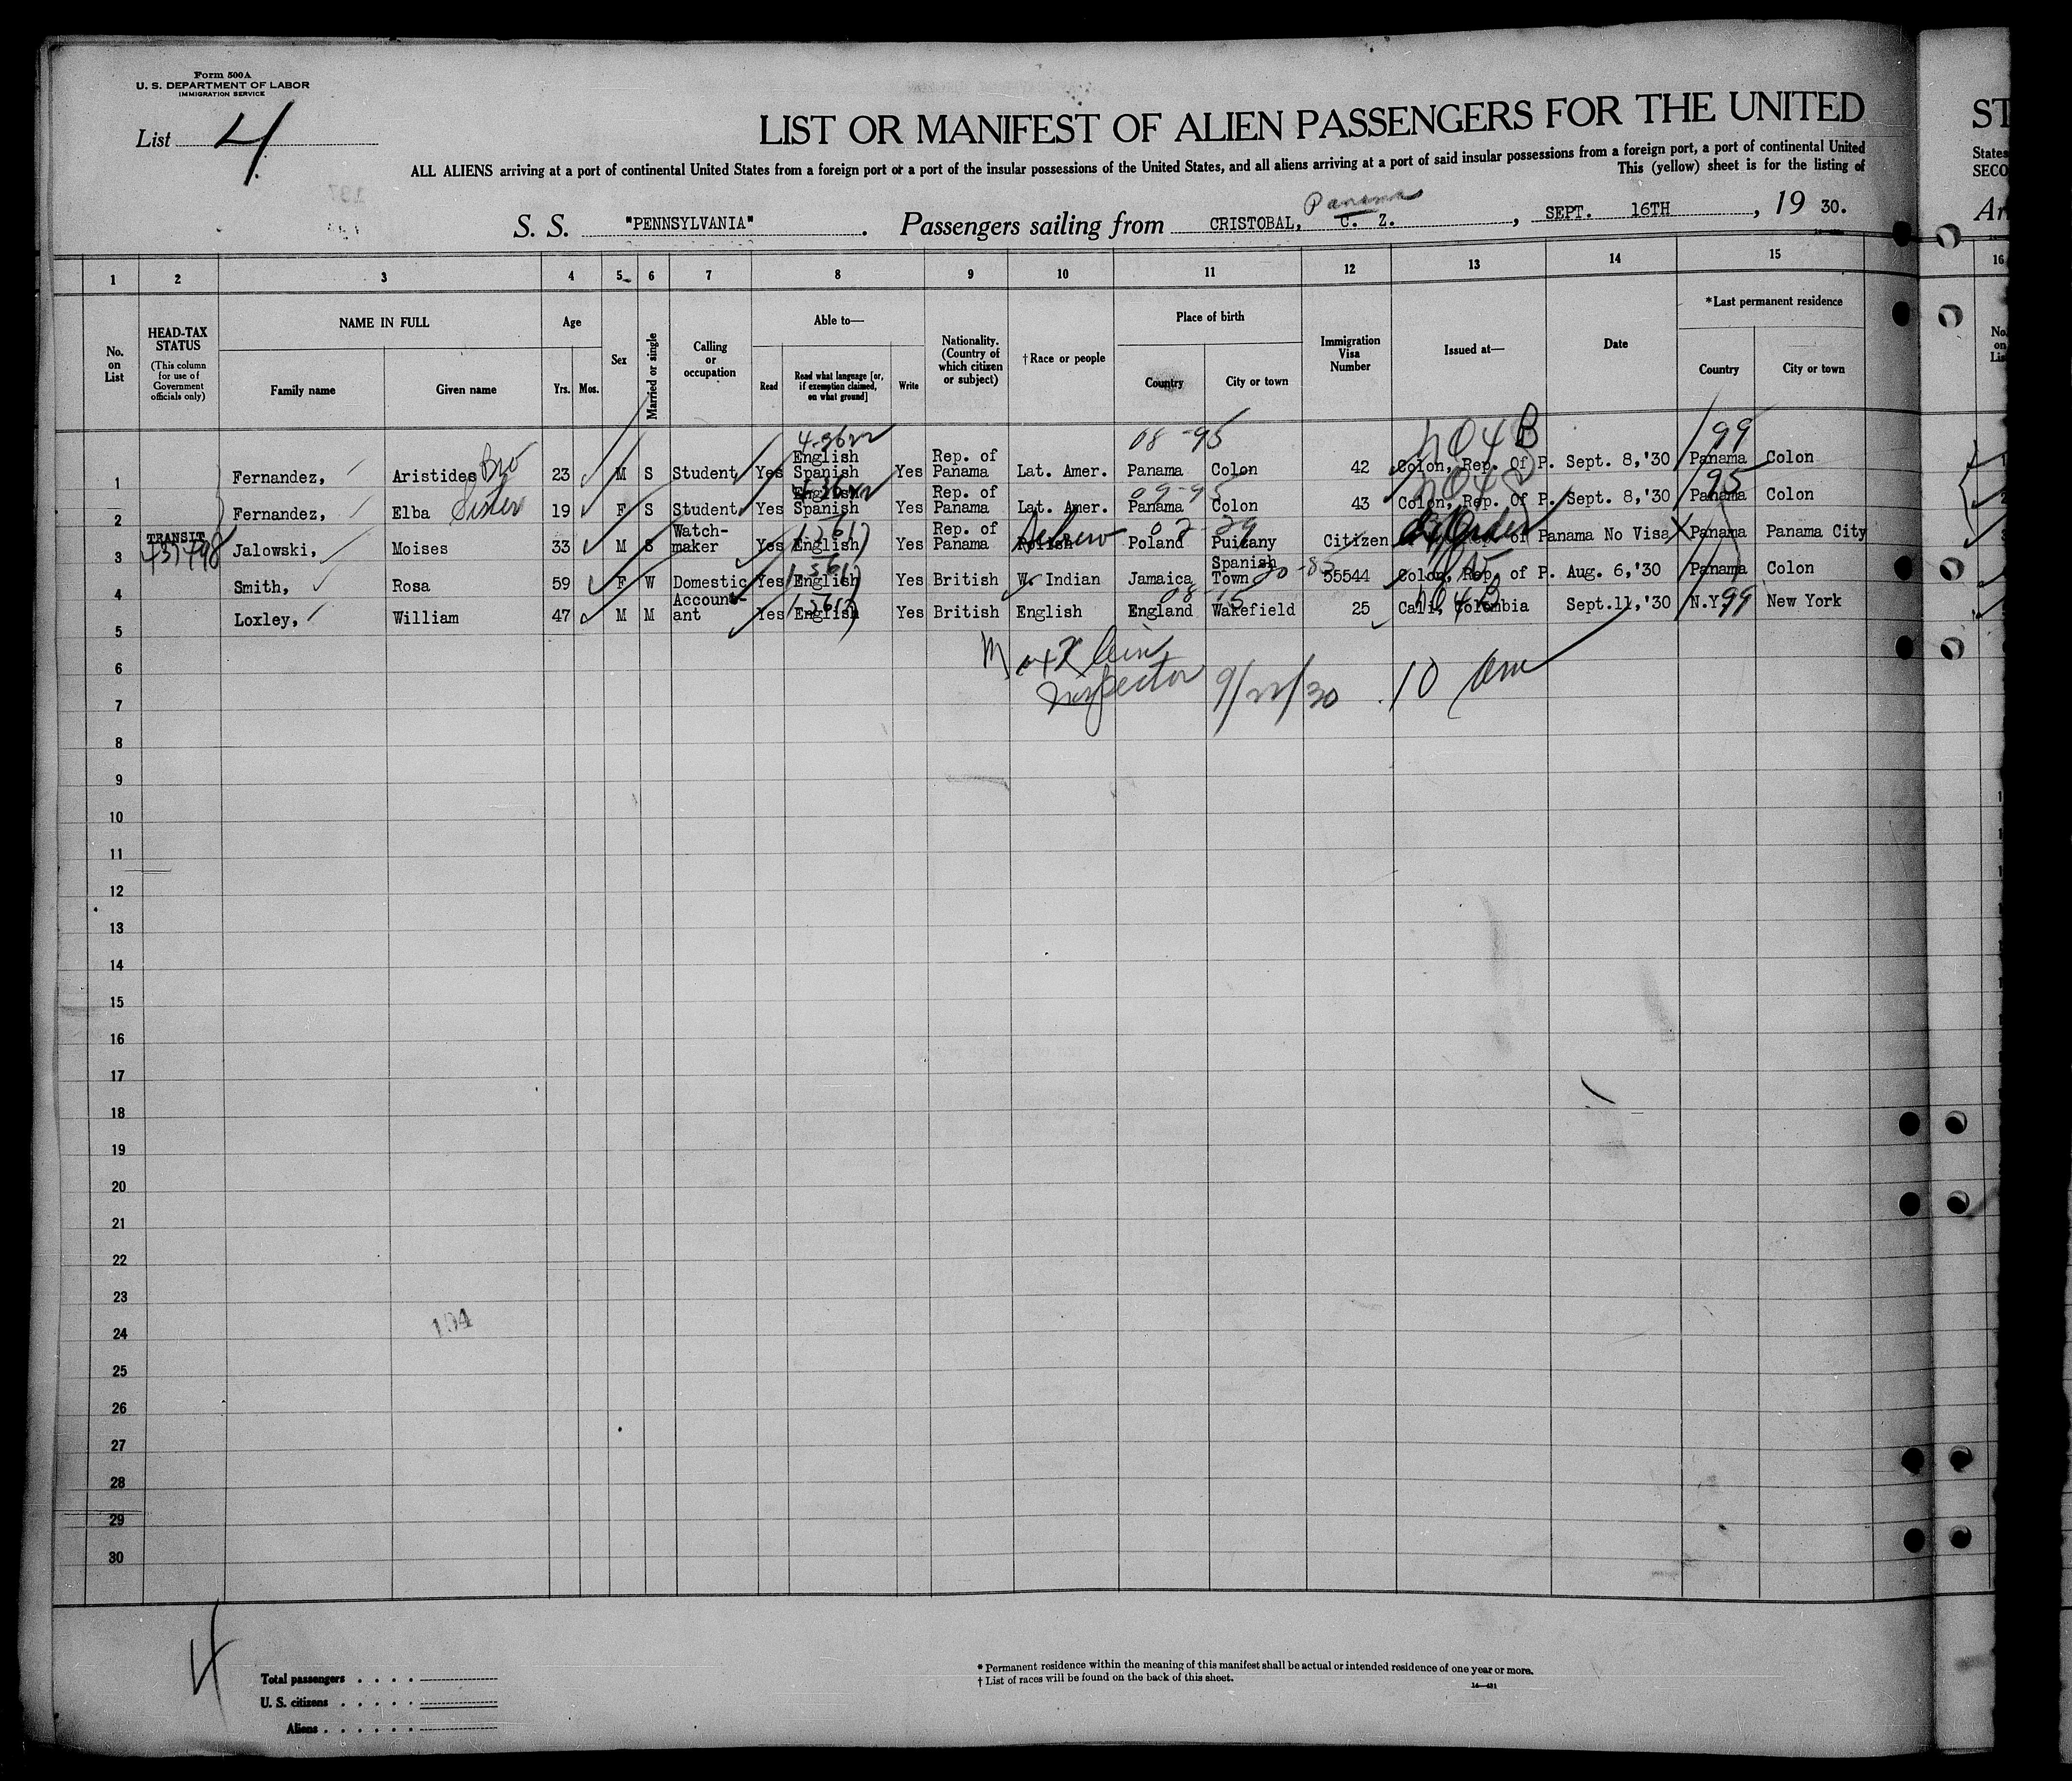 Form 500A
U. S. DEPARTMENT OF LABOR
IMMIGRATION SERVICE
List 4
LIST OR MANIFEST OF ALIEN PASSENGERS FOR THE UNITED
ST
ALL ALIENS arriving at a port of continental United States from a foreign port or a port of the insular possessions of the United States, and all aliens arriving at a port of said insular possessions from a foreign port, a port of continental United
States
This (yellow) sheet is for the listing of
SECO
Panama
S. S. "PENNSYLVANIA" . Passengers sailing from CRISTOBAL, C. Z. , SEPT. 16TH , 19 30.
Ar
1 2 3 4 5 6 7 8 9 10 11 12 13 14 15 16
No. on List
HEAD-TAX STATUS
(This column for use of Government officials only)
NAME IN FULL
Family name Given name
Age
Yrs. Mos.
Sex
Married or single
Calling or occupation
Able to—
Read
Read what language [or, if exemption claimed, on what ground]
Write
Nationality. (Country of which citizen or subject)
†Race or people
Place of birth
Country City or town
Immigration Visa Number
Issued at—
Date
*Last permanent residence
Country City or town
1 Fernandez, Aristides Bro 23 M S Student Yes English Spanish Yes Rep. of Panama Lat. Amer. Panama Colon 42 Colon, Rep. Of P. Sept. 8,'30 Panama Colon
08-95
99
2 Fernandez, Elba Sister 19 F S Student Yes English Spanish Yes Rep. of Panama Lat. Amer. Panama Colon 43 Colon, Rep. Of P. Sept. 8,'30 Panama Colon
09-95
95
3 TRANSIT Jalowski, Moises 33 M S Watch-maker Yes English Yes Rep. of Panama Polish Hebrew Poland Citizen of Panama No Visa Panama Panama City
4 Smith, Rosa 59 F W Domestic Yes English Yes British W. Indian Jamaica Spanish Town 55544 Colon, Rep. of P. Aug. 6,'30 Panama Colon
5 Loxley, William 47 M M Account-ant Yes English Yes British English England Wakefield 25 Cali, Colombia Sept.11,'30 N.Y. 99 New York
6
Inspector 9/22/30 10 am
7
8
9
10
11
12
13
14
15
16
17
18
19
20
21
22
23
24
104
25
26
27
28
29
30
4
Total passengers
U. S. citizens
Aliens
* Permanent residence within the meaning of this manifest shall be actual or intended residence of one year or more.
† List of races will be found on the back of this sheet.